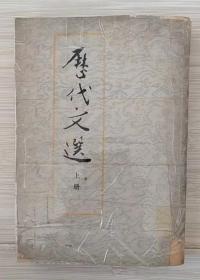 歷代文選
上册